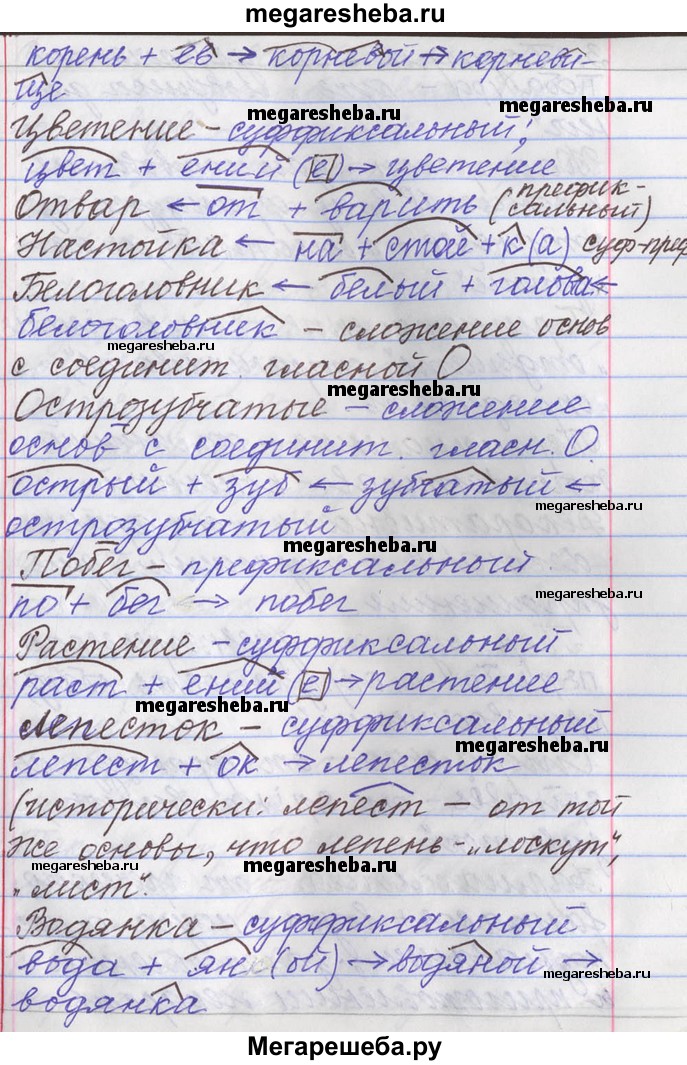 megaresheba.ru
корень + ев → корневой → корневи-
ще
megaresheba.ru
megaresheba.ru
Цветение – суффиксальный;
цвет + ений (е) → цветение
megaresheba.ru
Отвар ← от + варить (префик-
сальный)
Настойка ← на + стой + к(а) суф-преф
Белоголовник ← белый + голова ←
megaresheba.ru
белоголовник – сложение основ
megaresheba.ru
с соединит. гласной О
megaresheba.ru
Острозубчатые – сложение
основ с соединит. гласн. О.
острый + зуб ← зубчатый ←
megaresheba.ru
острозубчатый
megaresheba.ru
Побег – префиксальный
megaresheba.ru
по + бег → побег
Растение – суффиксальный
раст + ений (е) → растение
megaresheba.ru
Лепесток – суффиксальный
megaresheba.ru
лепест + ок → лепесток
(исторически: лепест – от той
же основы, что лепень - „лоскут",
megaresheba.ru
megaresheba.ru
„лист".
Водянка – суффиксальный
вода + ян (ой) → водяной →
megaresheba.ru
водянка
Мегарешеба.ру